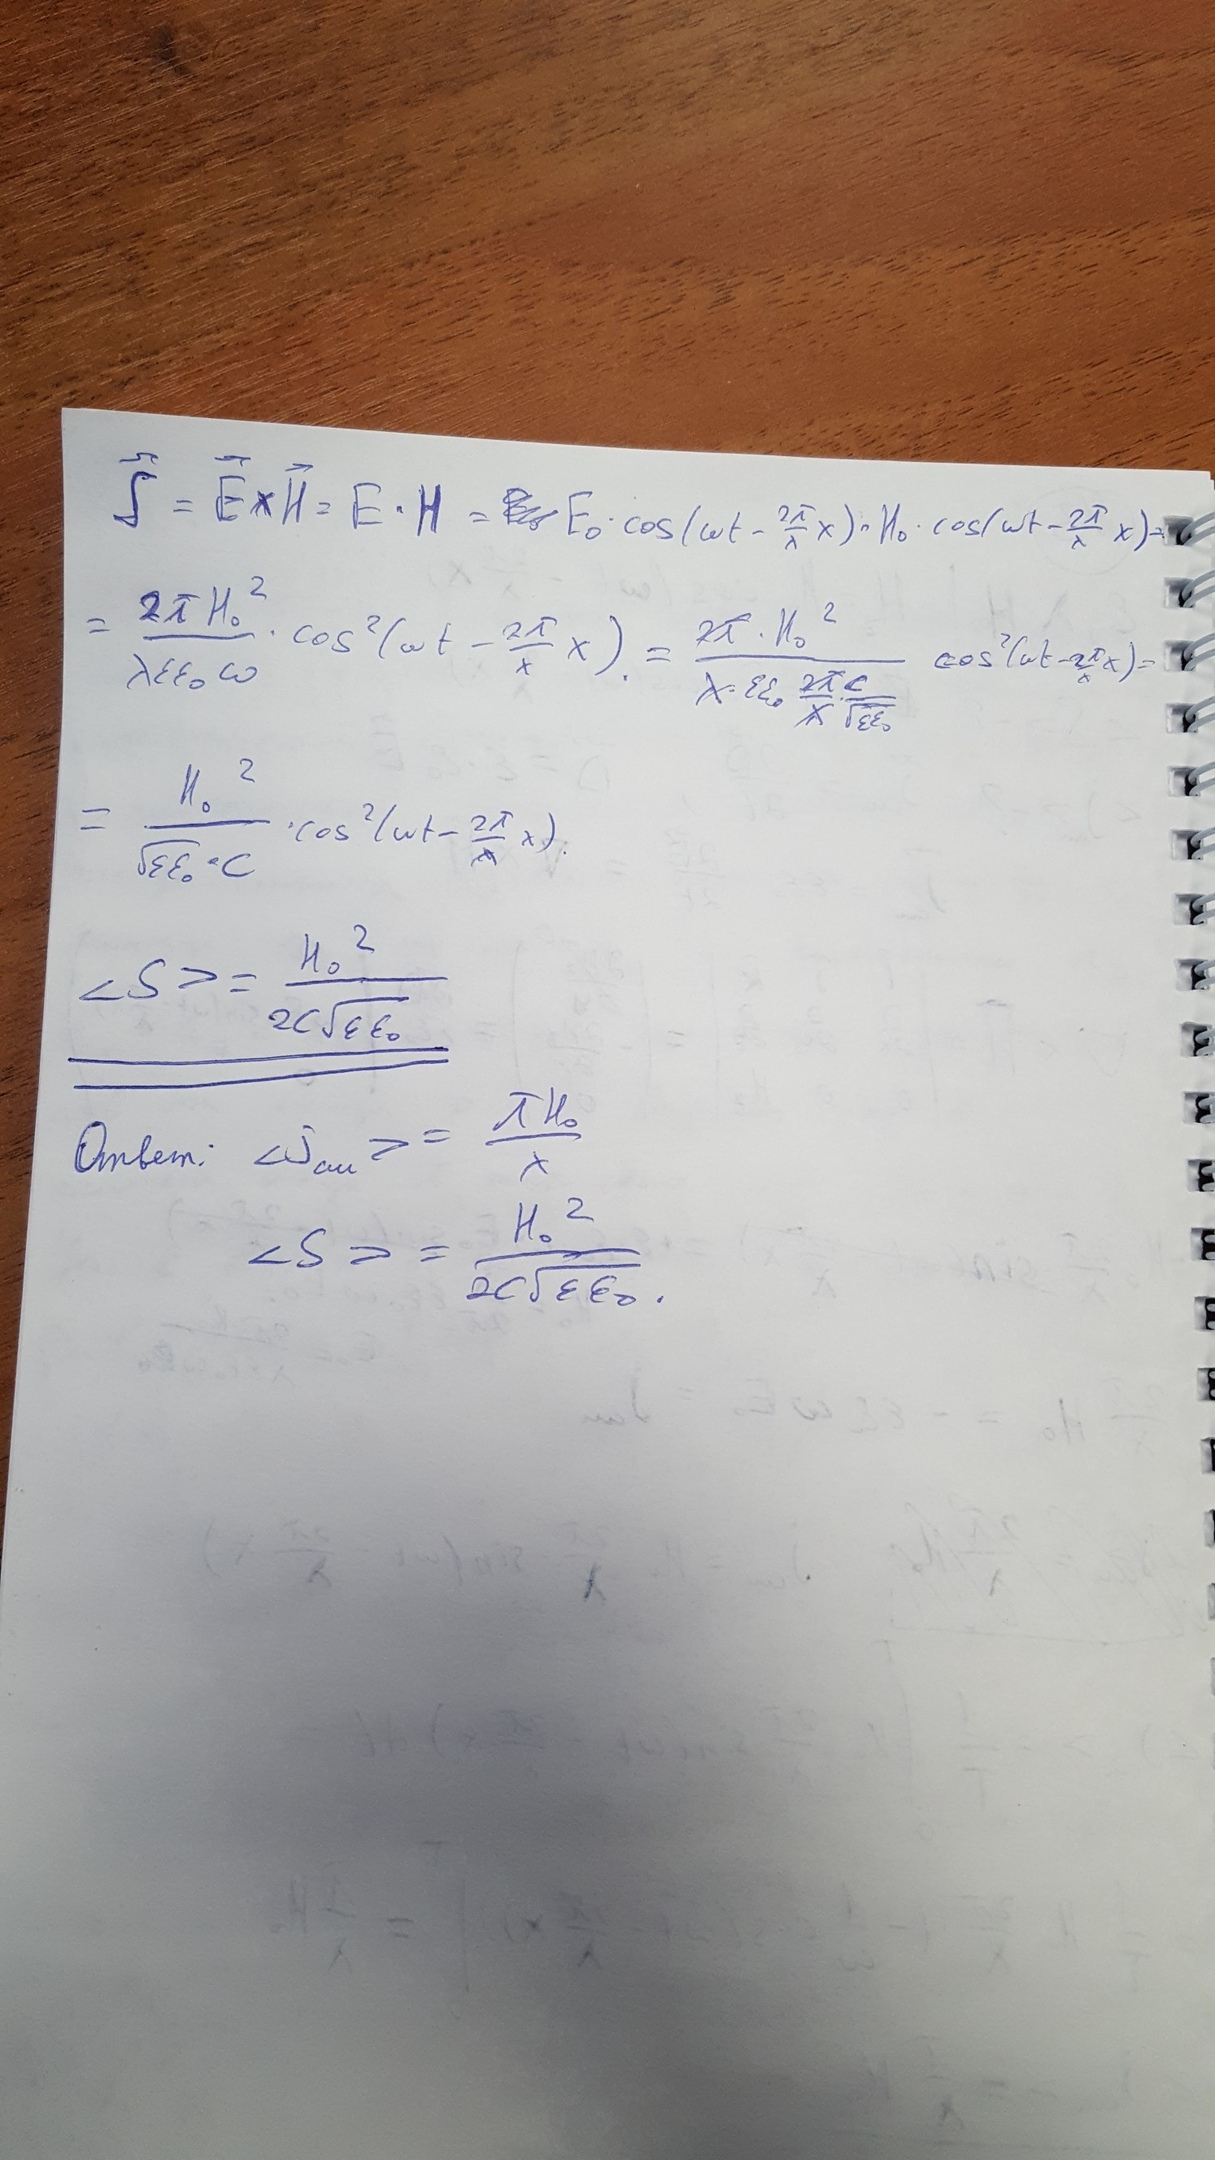 S⃗ = E⃗ × H⃗ = E · H = E₀ · cos(ωt − 2π/λ x) · H₀ · cos(ωt − 2π/λ x) =
= 2πH₀²/(λεε₀ω) · cos²(ωt − 2π/λ x). = 2π · H₀²/(λ · εε₀ 2π/λ · c/√(εε₀)) cos²(ωt − 2π/λ x) =
= H₀²/(√(εε₀) · c) · cos²(ωt − 2π/λ x).
<S> = H₀²/(2c√(εε₀))
Ответ: <j см> = πH₀/λ
<S> = H₀²/(2c√(εε₀)).